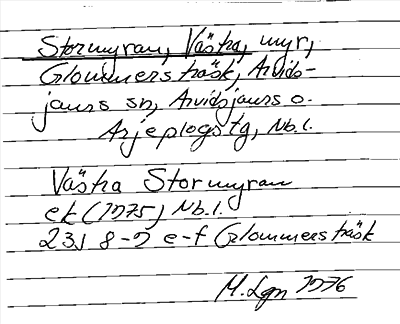 Stormyran, Västra, myr,
Glommersträsk, Arvids-
jaurs sn, Arvidsjaurs o.
Arjeplogs tg, Nb.l.
Västra Stormyran
ek (1975) Nb.l.
23J 8-9 e-f Glommersträsk
M. Lgn 1976